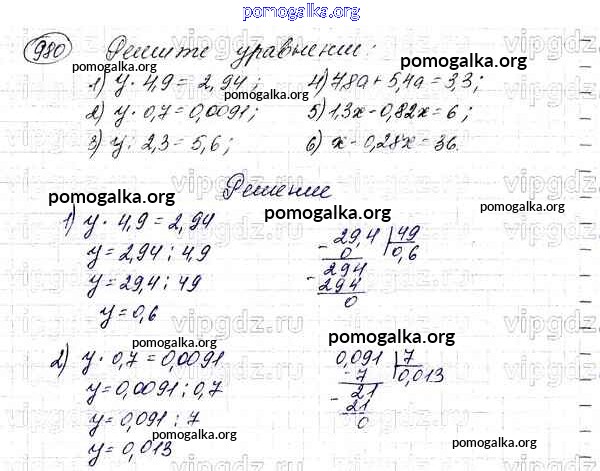 pomogalka.org
980 Решите уравнения:
1) y · 4,9 = 2,94; 4) 7,8a + 5,4a = 3,3;
2) y · 0,7 = 0,0091; 5) 1,3x - 0,82x = 6;
3) y : 2,3 = 5,6; 6) x - 0,28x = 36.
Решение
pomogalka.org pomogalka.org
1) y · 4,9 = 2,94 pomogalka.org
y = 2,94 : 4,9
y = 29,4 : 49
y = 0,6
- 29,4 | 49
0 0,6
- 294
294
0
pomogalka.org pomogalka.org
2) y · 0,7 = 0,0091
y = 0,0091 : 0,7
y = 0,091 : 7
y = 0,013
0,091 | 7
- 7 0,013
- 21
21
0
pomogalka.org pomogalka.org
vipgdz.ru vipgdz.ru vipgdz.ru